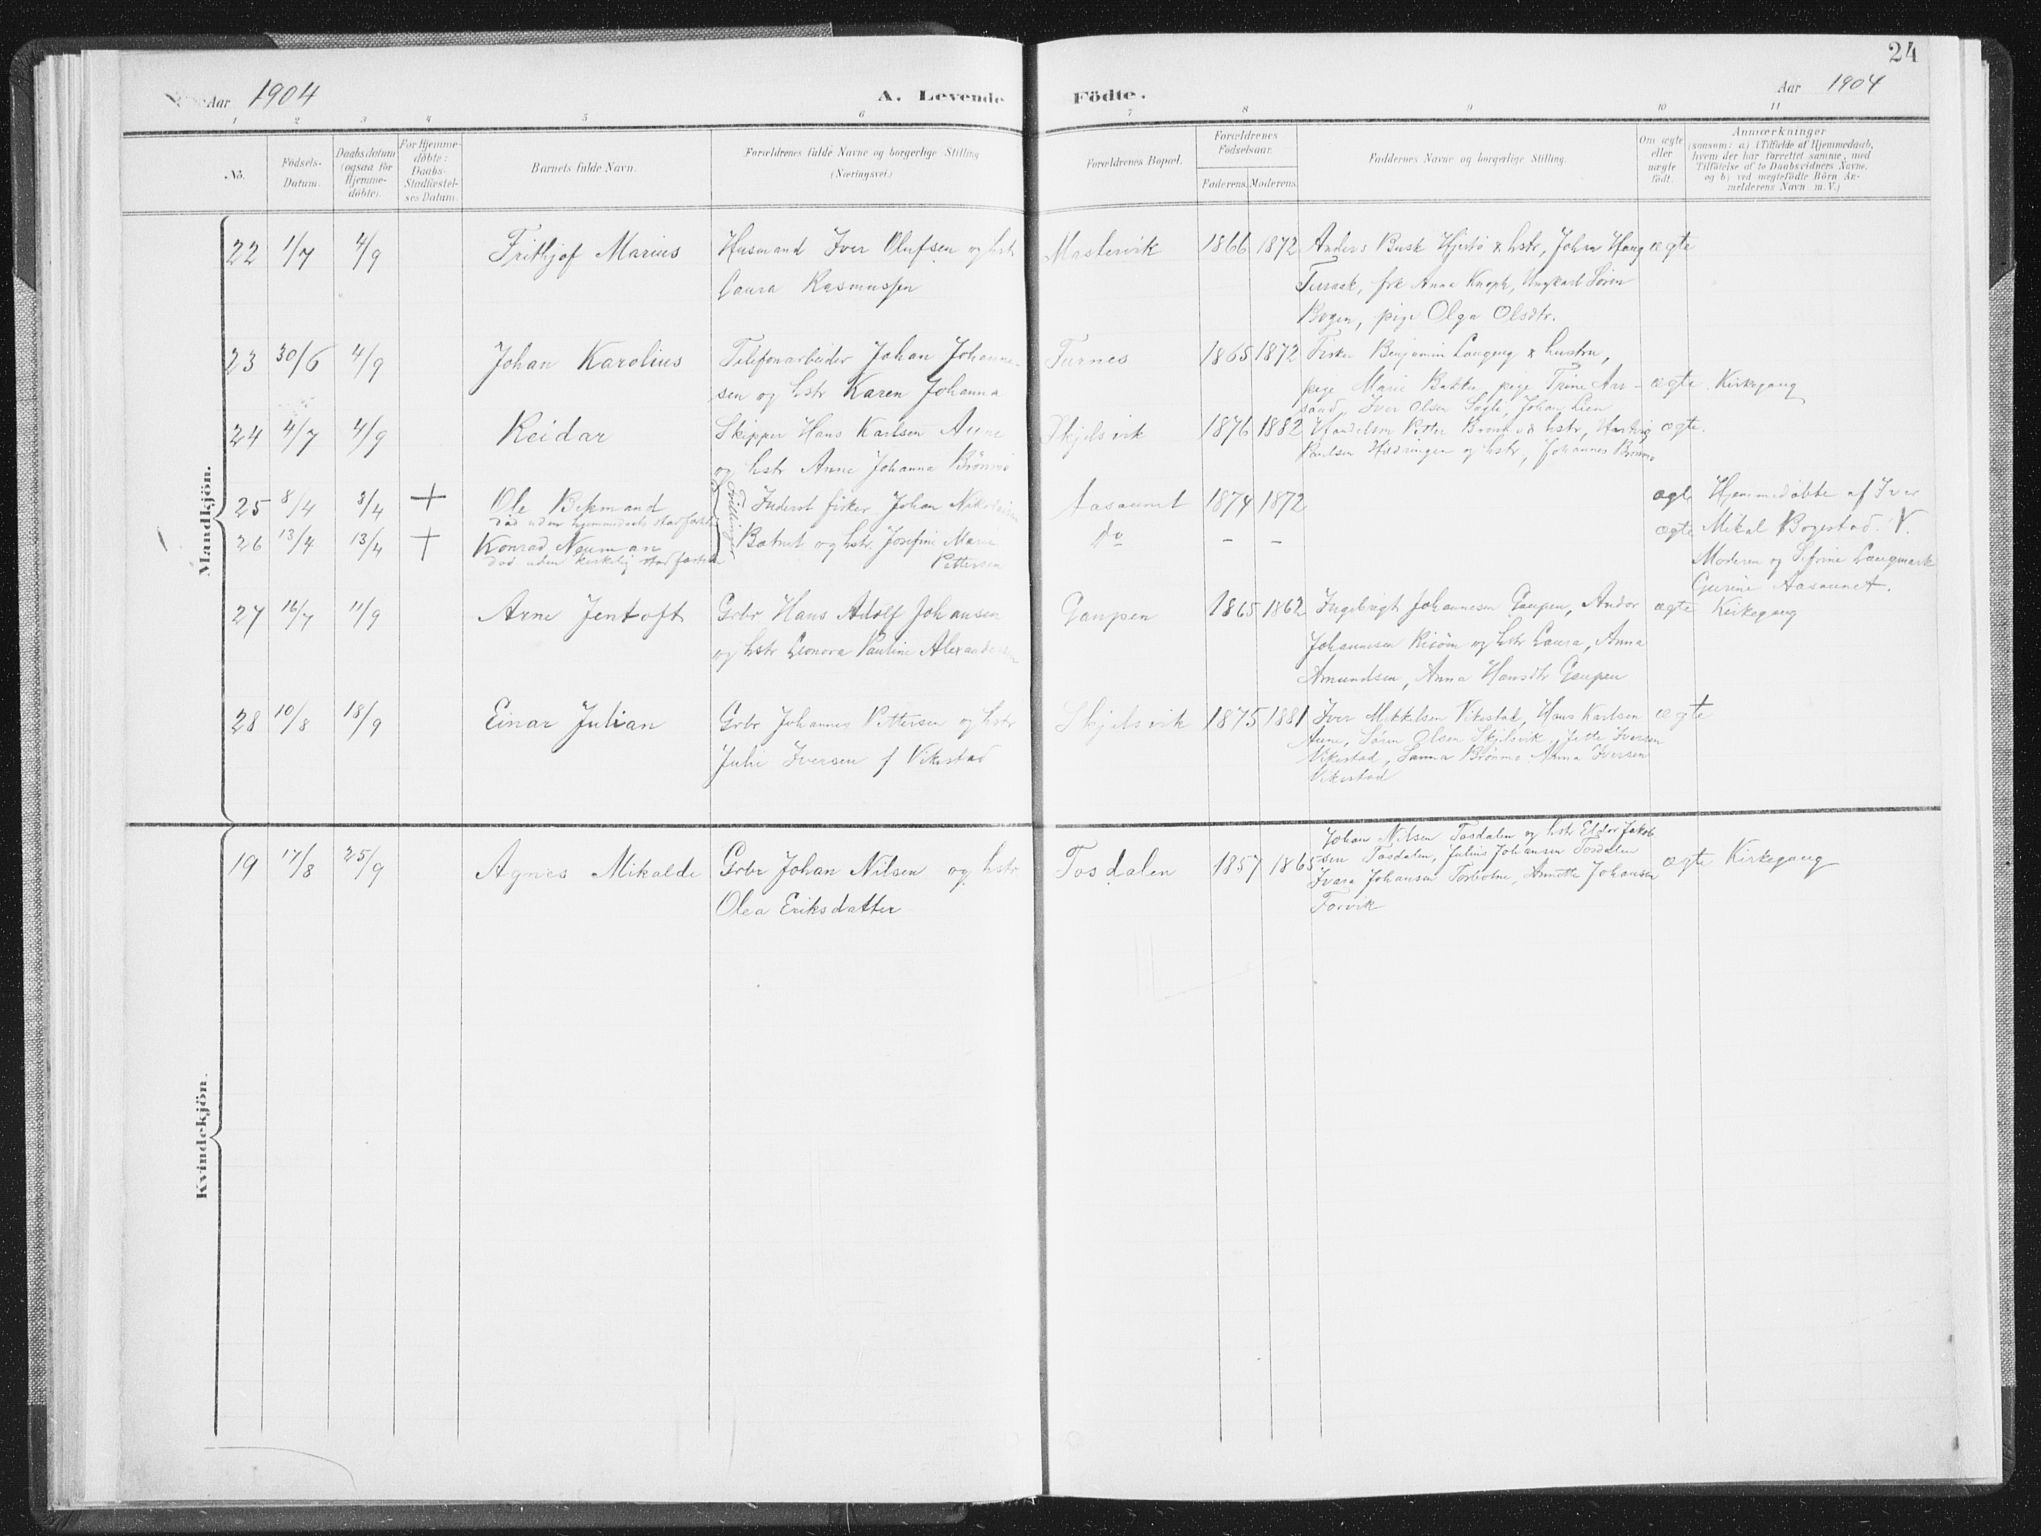 24
Aar 1904 A. Levende Födte. Aar 1904
1 2 3 4 5 6 7 8 9 10 11
No.
Födsels-Datum.
Daabsdatum (ogsaa for Hjemme-döbte).
For Hjemme-döbte: Daabs-Stadfæstel-ses Datum.
Barnets fulde Navn.
Forældrenes fulde Navne og borgerlige Stilling (Næringsvei.)
Forældrenes Bopæl.
Forældrenes Födselsaar.
Faderens. Moderens.
Faddernes Navne og borgerlige Stilling.
Om ægte eller uægte födt.
Anmærkninger
(saasom: a) i Tilfælde af Hjemmedaab,
hvem der har forrettet samme, med
Tilföielse af to Daabsvidners Navne,
og b) ved uægtefödte Börn An-
melderens Navn m. V.)
Mandkjön.
22 1/7 4/9 Frithjof Marius Husmand Iver Olufsen og hst 1866 1872 Anders Busk & hstr, Johan Haug ægte
Laura Rasmussen frk Anna Ungkarl Sören
Bogen, pige Olga Olsdtr.
23 30/6 4/9 Johan Karolius Telefonarbeider Johan Johanne- Furnes 1865 1872 Fisker Benjamin & hustru,
sen og hstr Karen Johanna pige Marie pige Trine ægte Kirkegang
Iver Olsen Johan Lien
24 4/7 4/9 Reidar Skipper Hans Karlsen Aune Skjelsvik 1876 1882 Petter hstr, ægte
og hstr Anne Johanna Brönmo og hstr, Johannes Brönmo
25 8/4 3/4 + Ole Inderst fisker Johan Aasaunet 1874 1872 ægte Hjemmedöbte af Iver
Tvillinger
26 13/4 13/4 + Konrad Neuman Batnet og hstr. Josefine Marie do – – ægte Mikal Bogestad. V.
död uden kirkelig Pettersen Moderen og
Aasaunet.
27 16/7 11/9 Arne Jentoft Grbr Hans Adolf Johansen Gaupen 1865 1862 Ingebrigt Johannesen Gaupen, Andor ægte Kirkegang
og hstr Leonora Pauline Alexandersen Johannesen og hstr Laura, Anna
Amundsen, Anna Hansdtr Gaupen
28 10/8 18/9 Einar Julian Grbr Johannes Pettersen og hstr Skjelsvik 1875 1881 Iver Mikkelsen Vikestad, Hans Karlsen ægte
Aune, Sören Olsen Skjelsvik, Jette Iversen
Julie Iversen f Vikestad Vikestad, Sanna Brönmo Anna Iversen
Vikestad
Kvindekjön.
Johan Nilsen Tosdalen og hstr
19 17/8 25/9 Agnes Mikalde Grbr Johan Nilsen og hstr Tosdalen 1857 1865 Tosdalen, Julius Johansen Tosdalen ægte Kirkegang
Johansen Annette Johansen
Olea Eriksdatter Forvik